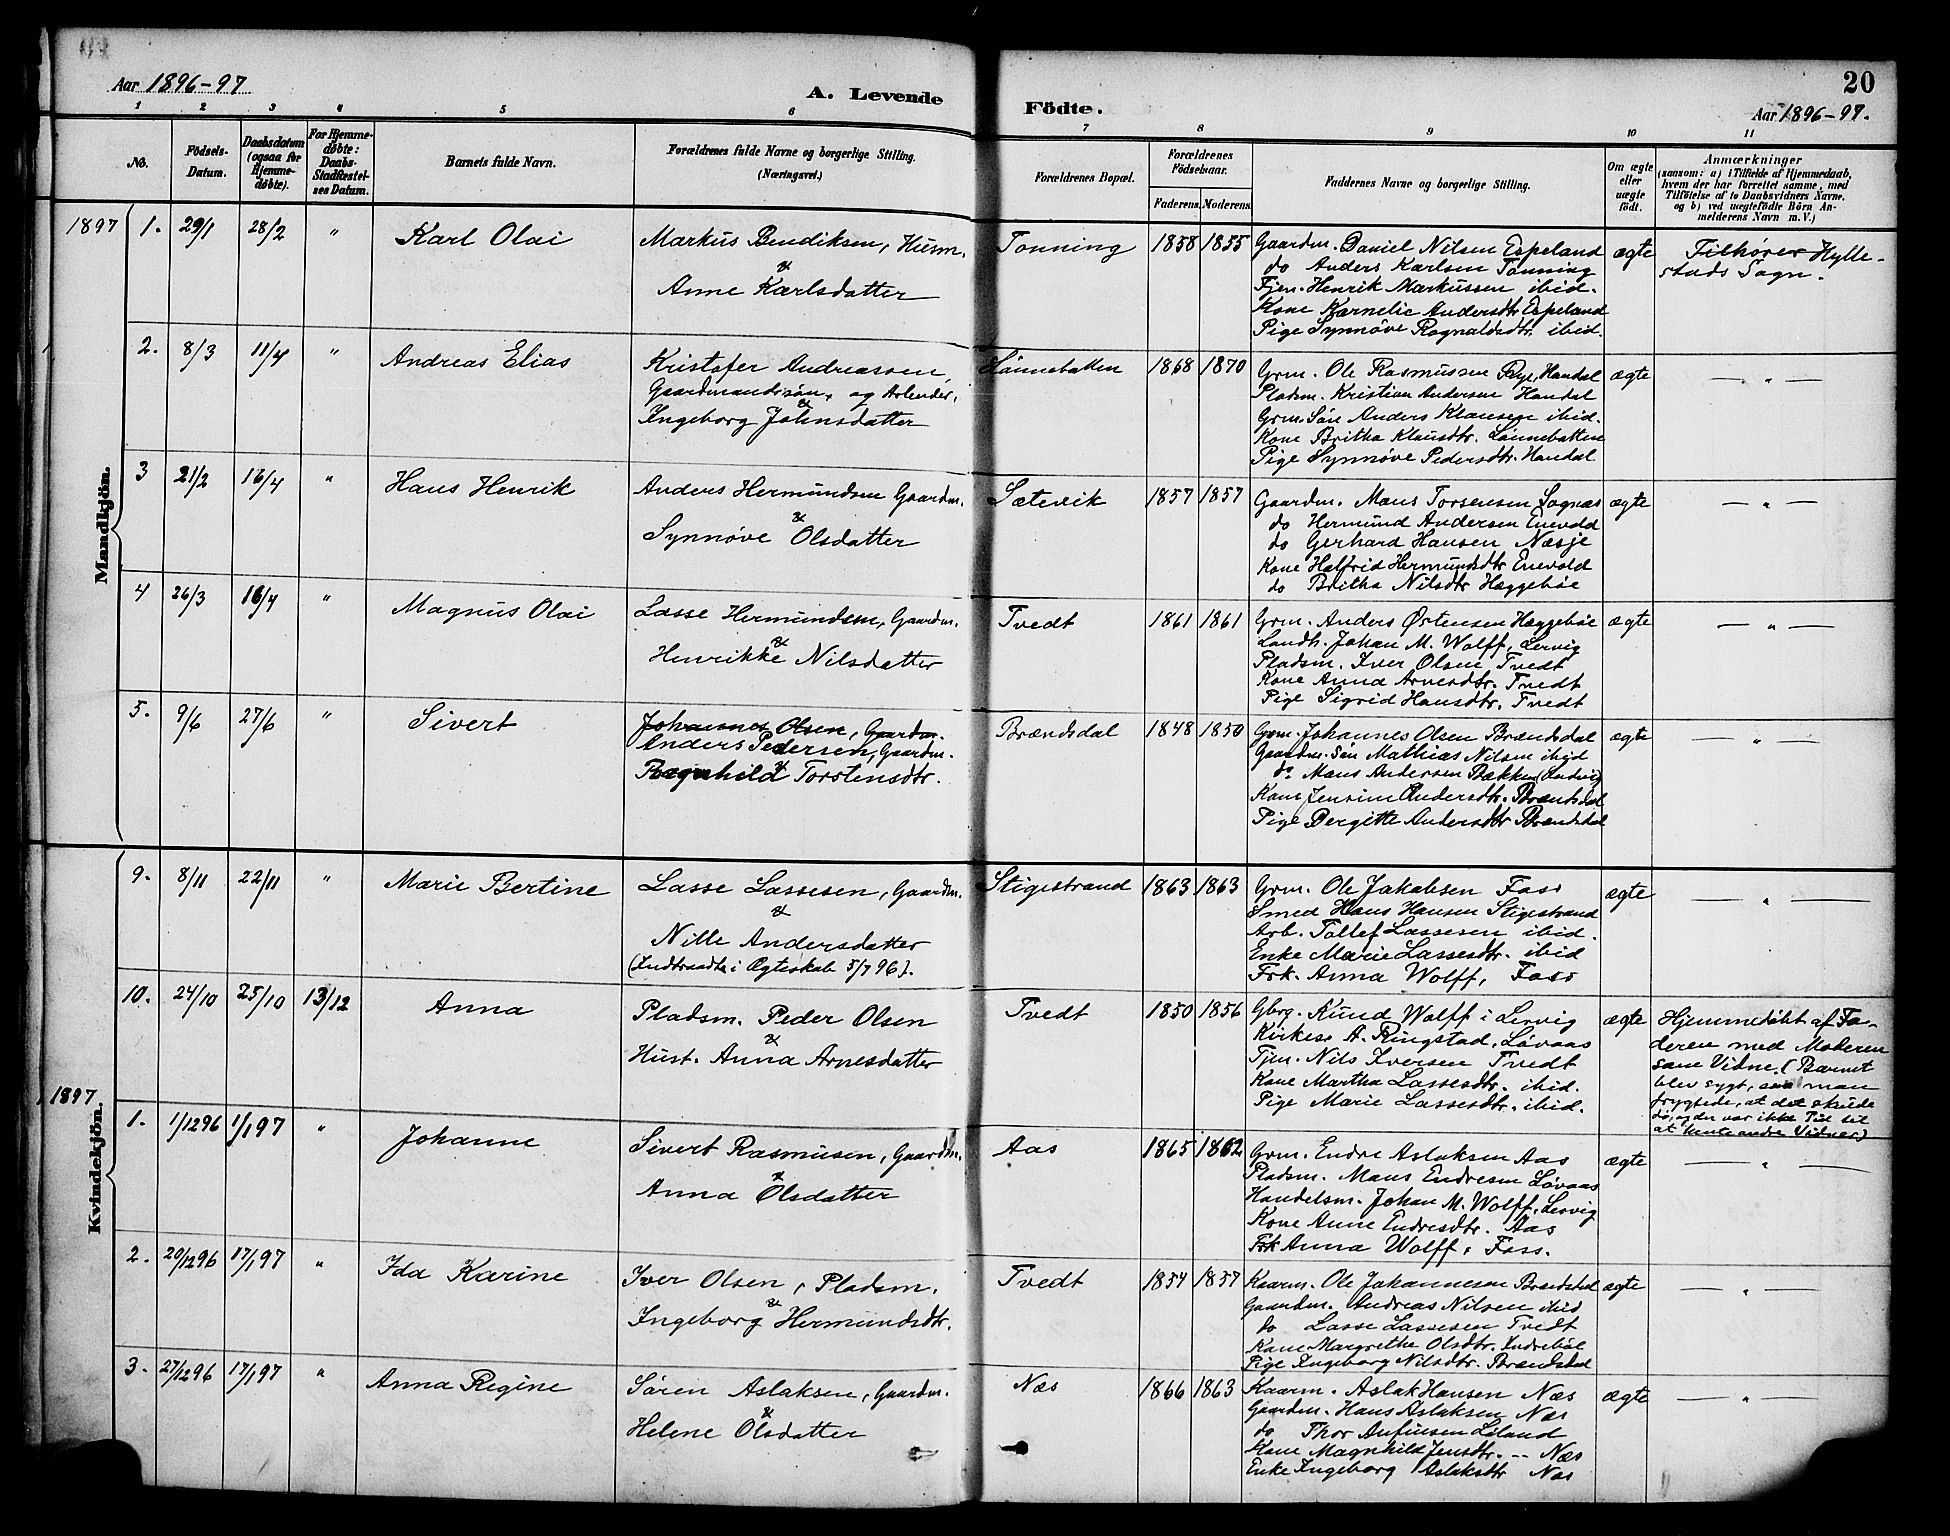 20
Aar 1896-97
A. Levende
Födte.
Aar 1896-97.
1 2 3 4 5 6 7 8 9 10 11
No.
Födsels-
Datum.
Daabsdatum
(ogsaa for
Hjemme-
døbte).
For Hjemme-
døbte:
Daabs-
Stadfæstel-
ses Datum.
Barnets fulde Navn.
Forældrenes fulde Navne og borgerlige Stilling.
(Næringsvei.)
Forældrenes Bopæl.
Forældrenes
Födselsaar.
Faderens. Moderens.
Faddernes Navne og borgerlige Stilling.
Om ægte
eller
uægte
födt.
Anmærkninger
(saasom: a) i Tilfælde af Hjemmedaab,
hvem der har forrettet samme, med
Tilföielse af to Daabsvidners Navne.
og b) ved uægtefödte Börn An-
melderens Navn m. V.)
Mandkjön.
1897
1. 29/1 28/2 "
Karl Olai
Markus Bendiksen, Husm.
&
Anne Karlsdatter
Tonning
1858 1855
Gaardm. Daniel Nilsen Espeland
do Anders Karlsen Tonning
Tjen. Henrik Markussen ibid.
Kone Karnelie Andersdtr Espeland
Pige Synnøve Rognaldsdtr. ibid.
ægte
Tilhører Hylle-
stads Sogn.
2. 8/3 11/4 "
Andreas Elias
Kristofer Andreassen,
Gaardmandssøn, og Arbeider,
&
Ingeborg Johnsdatter
Lønnebakken
1868 1870
Grm. Ole Rasmussen Rye, Handal
Pladsm. Kristian Andersen Handal
Grm. Søn Anders Klausen ibid.
Kone Britha Klausdtr. Lønnebakken
Pige Synnøve Pedersdtr. Handal
ægte
— " —
3 21/2 16/4 "
Hans Henrik
Anders Hermundsen Gaardm.
&
Synnøve Olsdatter
Sætevik
1857 1857
Gaardm. Mons Torsensen Sognæs
do Hermund Andersen Enevold
do Gerhard Hansen Næsje
Kone Halfrid Hermundsdtr Enevold
do Britha Nilsdtr Hæggebøe
ægte
— " —
4 26/3 16/4 "
Magnus Olai
Lasse Hermundsen, Gaardm.
&
Henrikke Nilsdatter
Tvedt
1861 1861
Grm. Anders Østensen Hæggebøe
Landh. Johan M. Wolff, Lervig
Pladsm. Iver Olsen Tvedt
Kone Anna Arnesdtr. Tvedt
Pige Sigrid Hansdtr. Tvedt
ægte
— " —
5. 9/6 27/6 "
Sivert
Johannes Olsen, Gaardm.
Anders Pedersen, Gaardm.
&
Ragnhild Torstensdtr.
Brændsdal
1848 1850
Grm. Johannes Olsen Brændsdal
Gaardm. Søn Mathias Nilsen ibid
do Mons Andersen Bækken (Indvig)
Kone Jensine Andersdtr. Brændsdal
Pige Bergitte Andersdtr Brændsdal
ægte
— " —
Kvindekjön.
9. 8/11 22/11 "
Marie Bertine
Lasse Lassesen, Gaardm.
&
Nille Andersdatter
(Indtraadte i Ægteskab 5/7 96).
Stigestrand
1863 1863
Grm. Ole Jakobsen Foss
Smed Hans Hansen Stigestrand
Arb. Tollef Lassesen ibid.
Enke Marie Lassesdtr. ibid
Frk. Anna Wolff, Foss
ægte
— " —
10. 24/10 25/10 13/12
Anna
Pladsm. Peder Olsen
&
Hust. Anna Arnesdatter
Tvedt
1850 1856
Gbrg. Knud Wolff i Lervig
Kirkes. A. Ringstad, Løvaas
Tjen. Nils Iversen Tvedt
Kone Martha Lassesdtr. ibid.
Pige Marie Lassesdtr. ibid.
ægte
Hjemmedøbt af Fa-
deren med Moderen
som Vidne. (Barnet
blev sygt, saa man
frygtede, at det skulde
dø, og der var ikke Tid til
at hente andre Vidner)
1897
1. 1/12 96 1/1 97 "
Johanne
Sivert Rasmusen, Gaardm.
&
Anna Olsdatter
Aas
1865 1862
Grm. Endre Aslaksen Aas
Pladsm. Mons Endresen Løvaas
Handelsm. Johan M. Wolff, Lervig
Kone Anne Endresdtr. Aas
Frk Anna Wolff, Foss.
ægte
— " —
2. 20/12 96 17/1 97 "
Ida Karine
Iver Olsen, Pladsm.
&
Ingeborg Hermundsdtr.
Tvedt
1854 1857
Kaarm. Ole Johannesen Brændsdal
Gaardm. Andreas Nilsen ibid
do Lasse Lassesen Tvedt
Kone Margrethe Olsdtr. Indrebøe
Pige Ingeborg Nilsdtr. Brændsdal
ægte
— " —
3. 27/12 96 17/1 97 "
Anna Regine
Søren Aslaksen, Gaardm.
&
Helene Olsdatter
Næs
1866 1863
Kaarm. Aslak Hansen Næs
Gaardm. Hans Aslaksen Næs
do Thor Anfinsen Løland
Kone Magnhild Jensdtr. -- Næs
Enke Ingeborg Aslaksdtr Næs
ægte
— " —